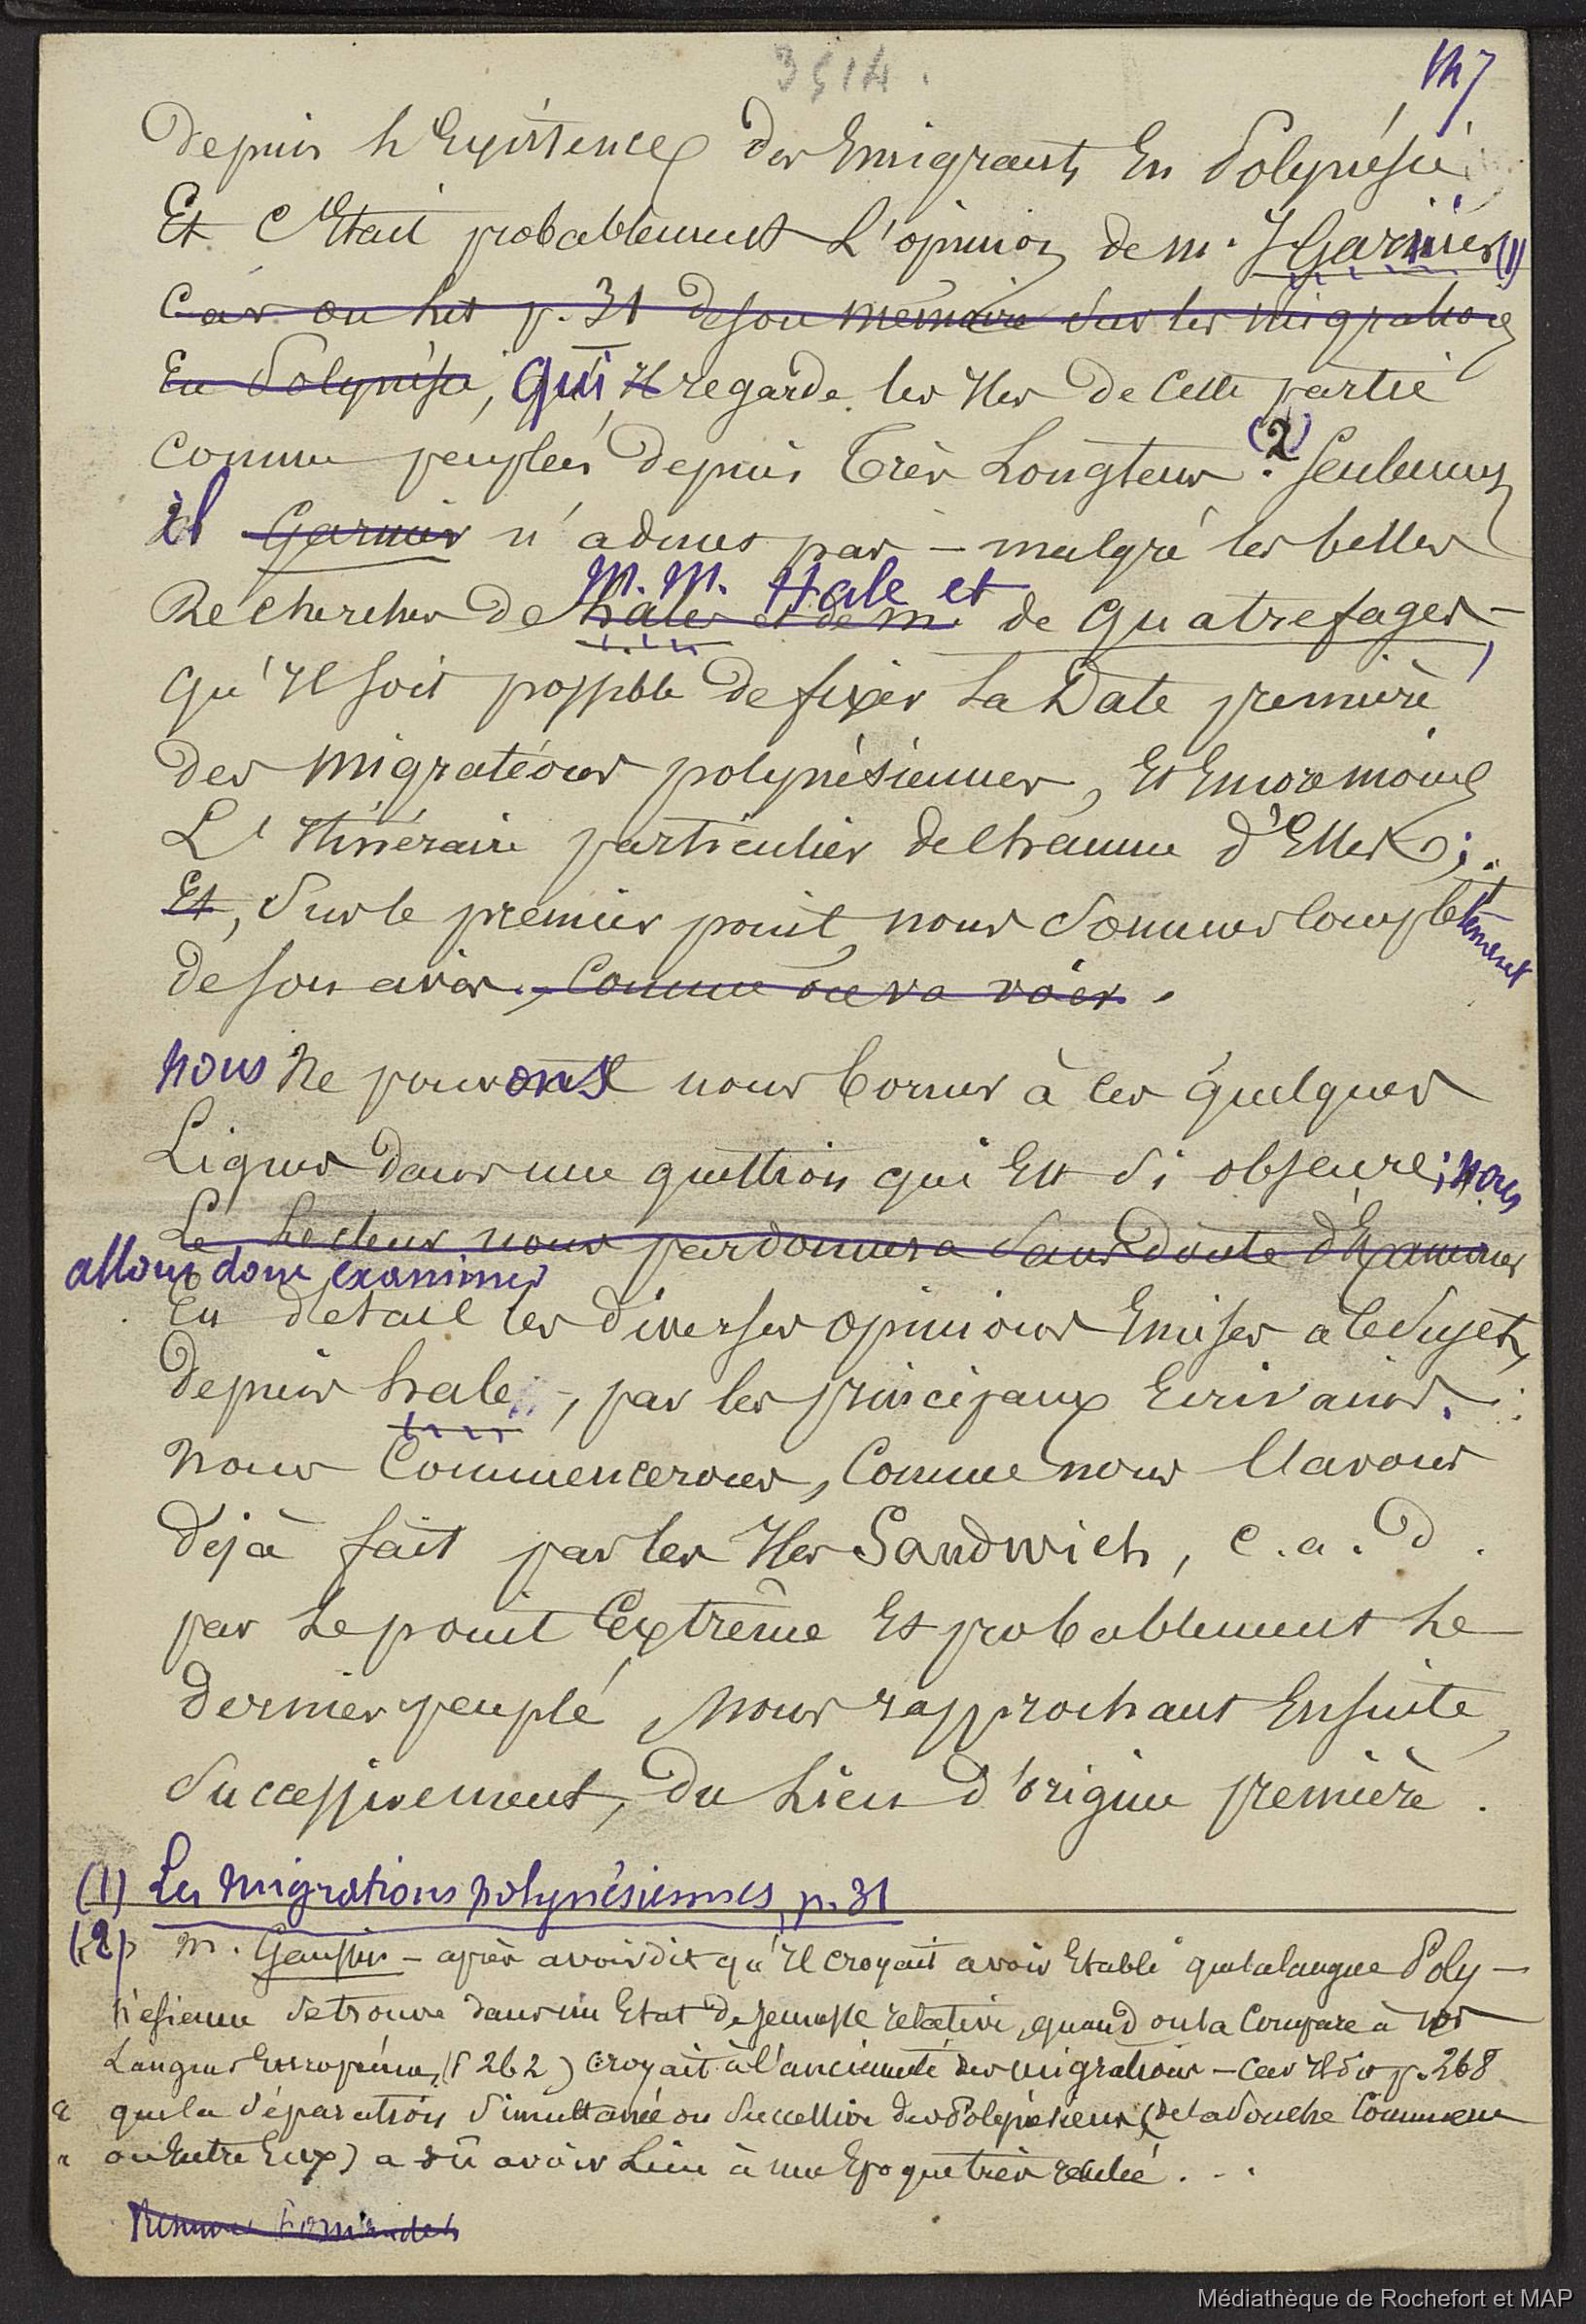 3514.
147
Depuis L'Existence des Emigrants En Polynésie
Et C'Etait probablement L'opinion de m. J Garnier (1)
Car on Lit p. 31 de son mémoire Sur les Migrations
En Polynésie, qui Il regarde les Iles De Cette partie
comme peuplées Depuis Très Longtems (2). Seulement
il Garnier n'admet pas – malgré les belles
M. M. Hale et
Recherches De hale et de m. de Quatrefages –,
qu'Il soit possible De fixer La Date première
des migrations polynésiennes, Et Encore moins
L'Itinéraire particulier de Chacune d'Elles;
Et, Sur le premier point, nous sommes complètement
de son avis, Comme on va voir.
Nous Ne pouvons nous borner à ces quelques
Lignes dans une question qui Est si obscure; nous
Le Lecteur nous pardonnera sans Doute d'Examiner
allons donc examiner
En détail les diverses opinions Emises à ce Sujet,
Depuis hale, par les principaux Ecrivains.
Nous Commencerons, Comme nous l'avons
Déjà fait par les Iles Sandwich, c.a.D.
par Le point Extrême Et probablement Le
dernier peuplé, Nous rapprochant Ensuite,
Successivement, Du Lieu d'origine première.
(1) Les Migrations polynésiennes, p. 31
(2) M. Gaussin – après avoir dit qu'Il croyait avoir Etabli que la langue Poly-
nésienne se trouve dans un Etat De jeunesse relative, quand on la Compare à nos
Langues Européennes, (P 262) croyait à l'ancienneté des migrations – car Il dit p. 268
« que la séparation Simultanée ou Successive des Polynésiens (de la Souche Commune
" ou Entre Eux) a dû avoir Lieu à une Epoque très reculée...